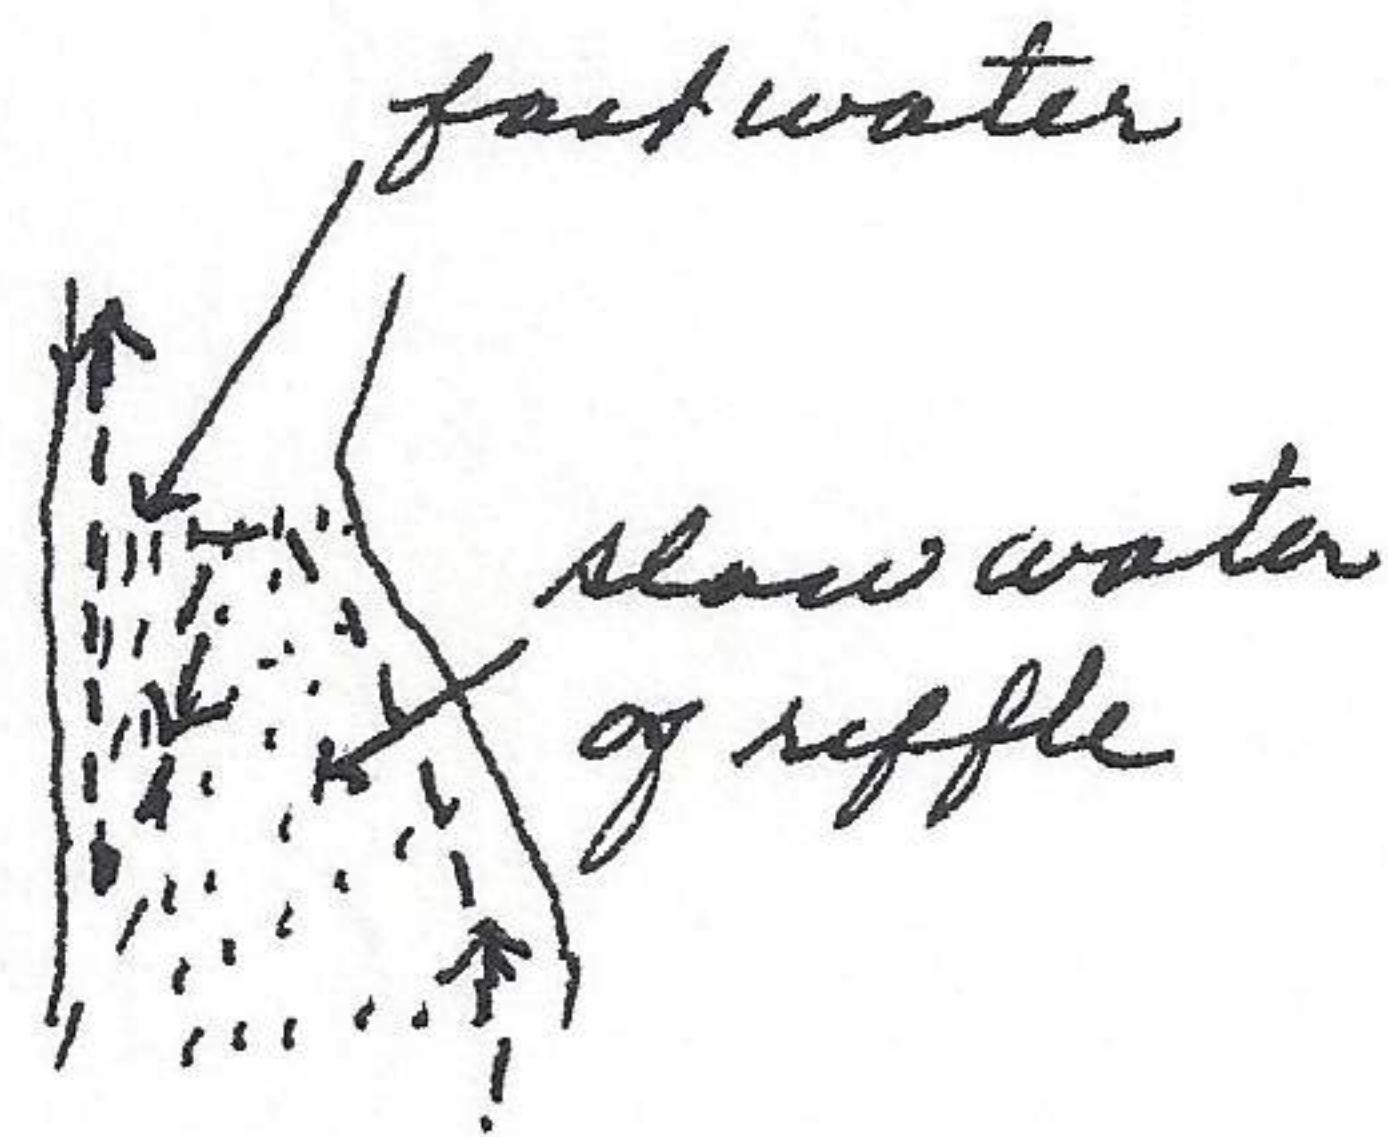 fast water
slow water
of riffle